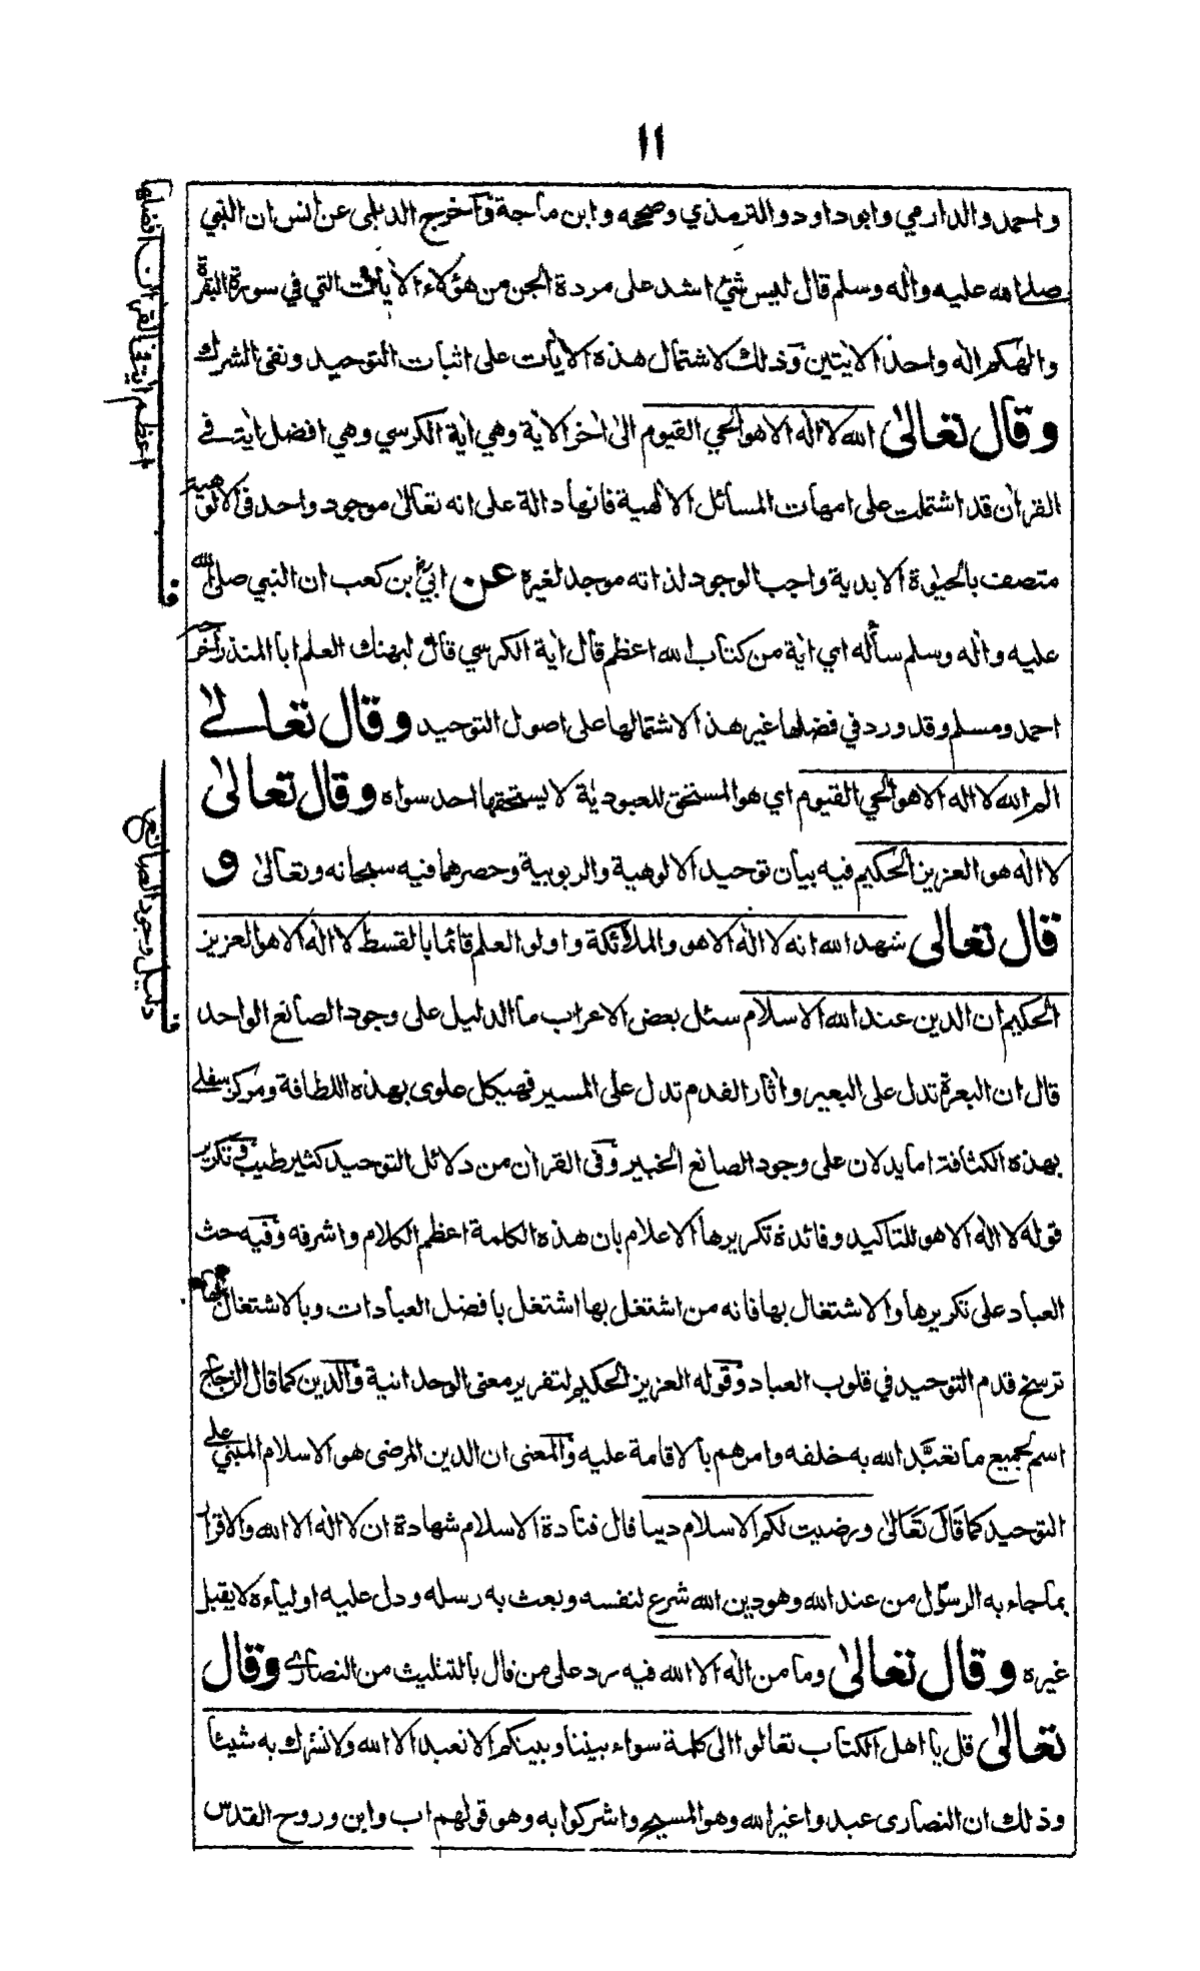 ١١
واحمد والدارمي وابوداود والترمذي وصححه وابن ماجة وآخرج الديلمى عن انس ان النبي
صلى الله عليه واله وسلم قال ليس شئ اشد على مردة الجن من هؤلاء الأيات التي في سورة البقرة
والهكم اله واحد الايتين وذلك لاشتمال هذه الأيات على اثبات التوحيد ونفى الشرك
وقال تعالىٰ الله لا اله الا هو الحي القيوم الىٰ اٰخر الاية وهي اية الكرسي وهي افضل اية في
القراٰن قد اشتملت على امهات المسائل الالٰهية فانها دالة على انه تعالىٰ موجود واحد فى الالوهية
متصف بالحيٰوة الابدية واجب الوجود لذاته موجد لغيره عن ابيّ بن كعب ان النبي صلى الله
عليه واٰله وسلم سأله اي اية من كتاب الله اعظم قال اية الكرسي قال ليهنك العلم ابا المنذر اخرجه
احمد ومسلم وقد ورد في فضلها غير هذا لاشتمالها على اصول التوحيد وقال تعالىٰ
الم الله لا اله الا هو الحي القيوم اي هو المستحق للعبودية لا يستحقها احد سواه وقال تعالىٰ
لا اله هو العزيز الحكيم فيه بيان توحيد الالوهية والربوبية وحصرهما فيه سبحانه وتعالىٰ و
قال تعالى شهد الله انه لا اله الا هو والملائكة واولو العلم قائما بالقسط لا اله الا هو العزيز
الحكيم ان الدين عند الله الاسلام سئل بعض الاعراب ما الدليل على وجود الصانع الواحد
قال ان البعرة تدل على البعير واٰثار القدم تدل على المسير فهيكل علوى بهذه اللطافة ومركز سفلے
بهذه الكثافة اما يدلان على وجود الصانع الخبير وفى القراٰن من دلائل التوحيد كثير طيب وتكرير
قوله لا اله الا هو للتاكيد وفائدة تكريرها الاعلام بان هذه الكلمة اعظم الكلام واشرفه وفيه حث
العباد على تكريرها والاشتغال بها فانه من اشتغل بها اشتغل بافضل العبادات وبالاشتغال بها
ترسخ قدم التوحيد في قلوب العباد وقوله العزيز الحكيم لتقرير معنى الوحدانية والدين كما قال الزجاج
اسم لجميع ما تعبّد الله به خلقه وامرهم بالاقامة عليه والمعنى ان الدين المرضى هو الاسلام المبني على
التوحيد كما قال تعالىٰ ورضيت لكم الاسلام دينا قال قتادة الاسلام شهادة ان لا اله الا الله والاقرار
بما جاء به الرسول من عند الله وهو دين الله شرع لنفسه وبعث به رسله ودل عليه اولياءه لا يقبل
غيره وقال تعالىٰ وما من اله الا الله فيه رد على من قال بالتثليث من النصارى وقال
تعالىٰ قل يا اهل الكتاب تعالوا الى كلمة سواء بيننا وبينكم الا نعبد الا الله ولا نشرك به شيئا
وذلك ان النصارى عبدوا غير الله وهو المسيح واشركوا به وهو قولهم اب وابن وروح القدس
ف
اعظم اية في القراٰن افضلها
ف
دليل وجود الصانع